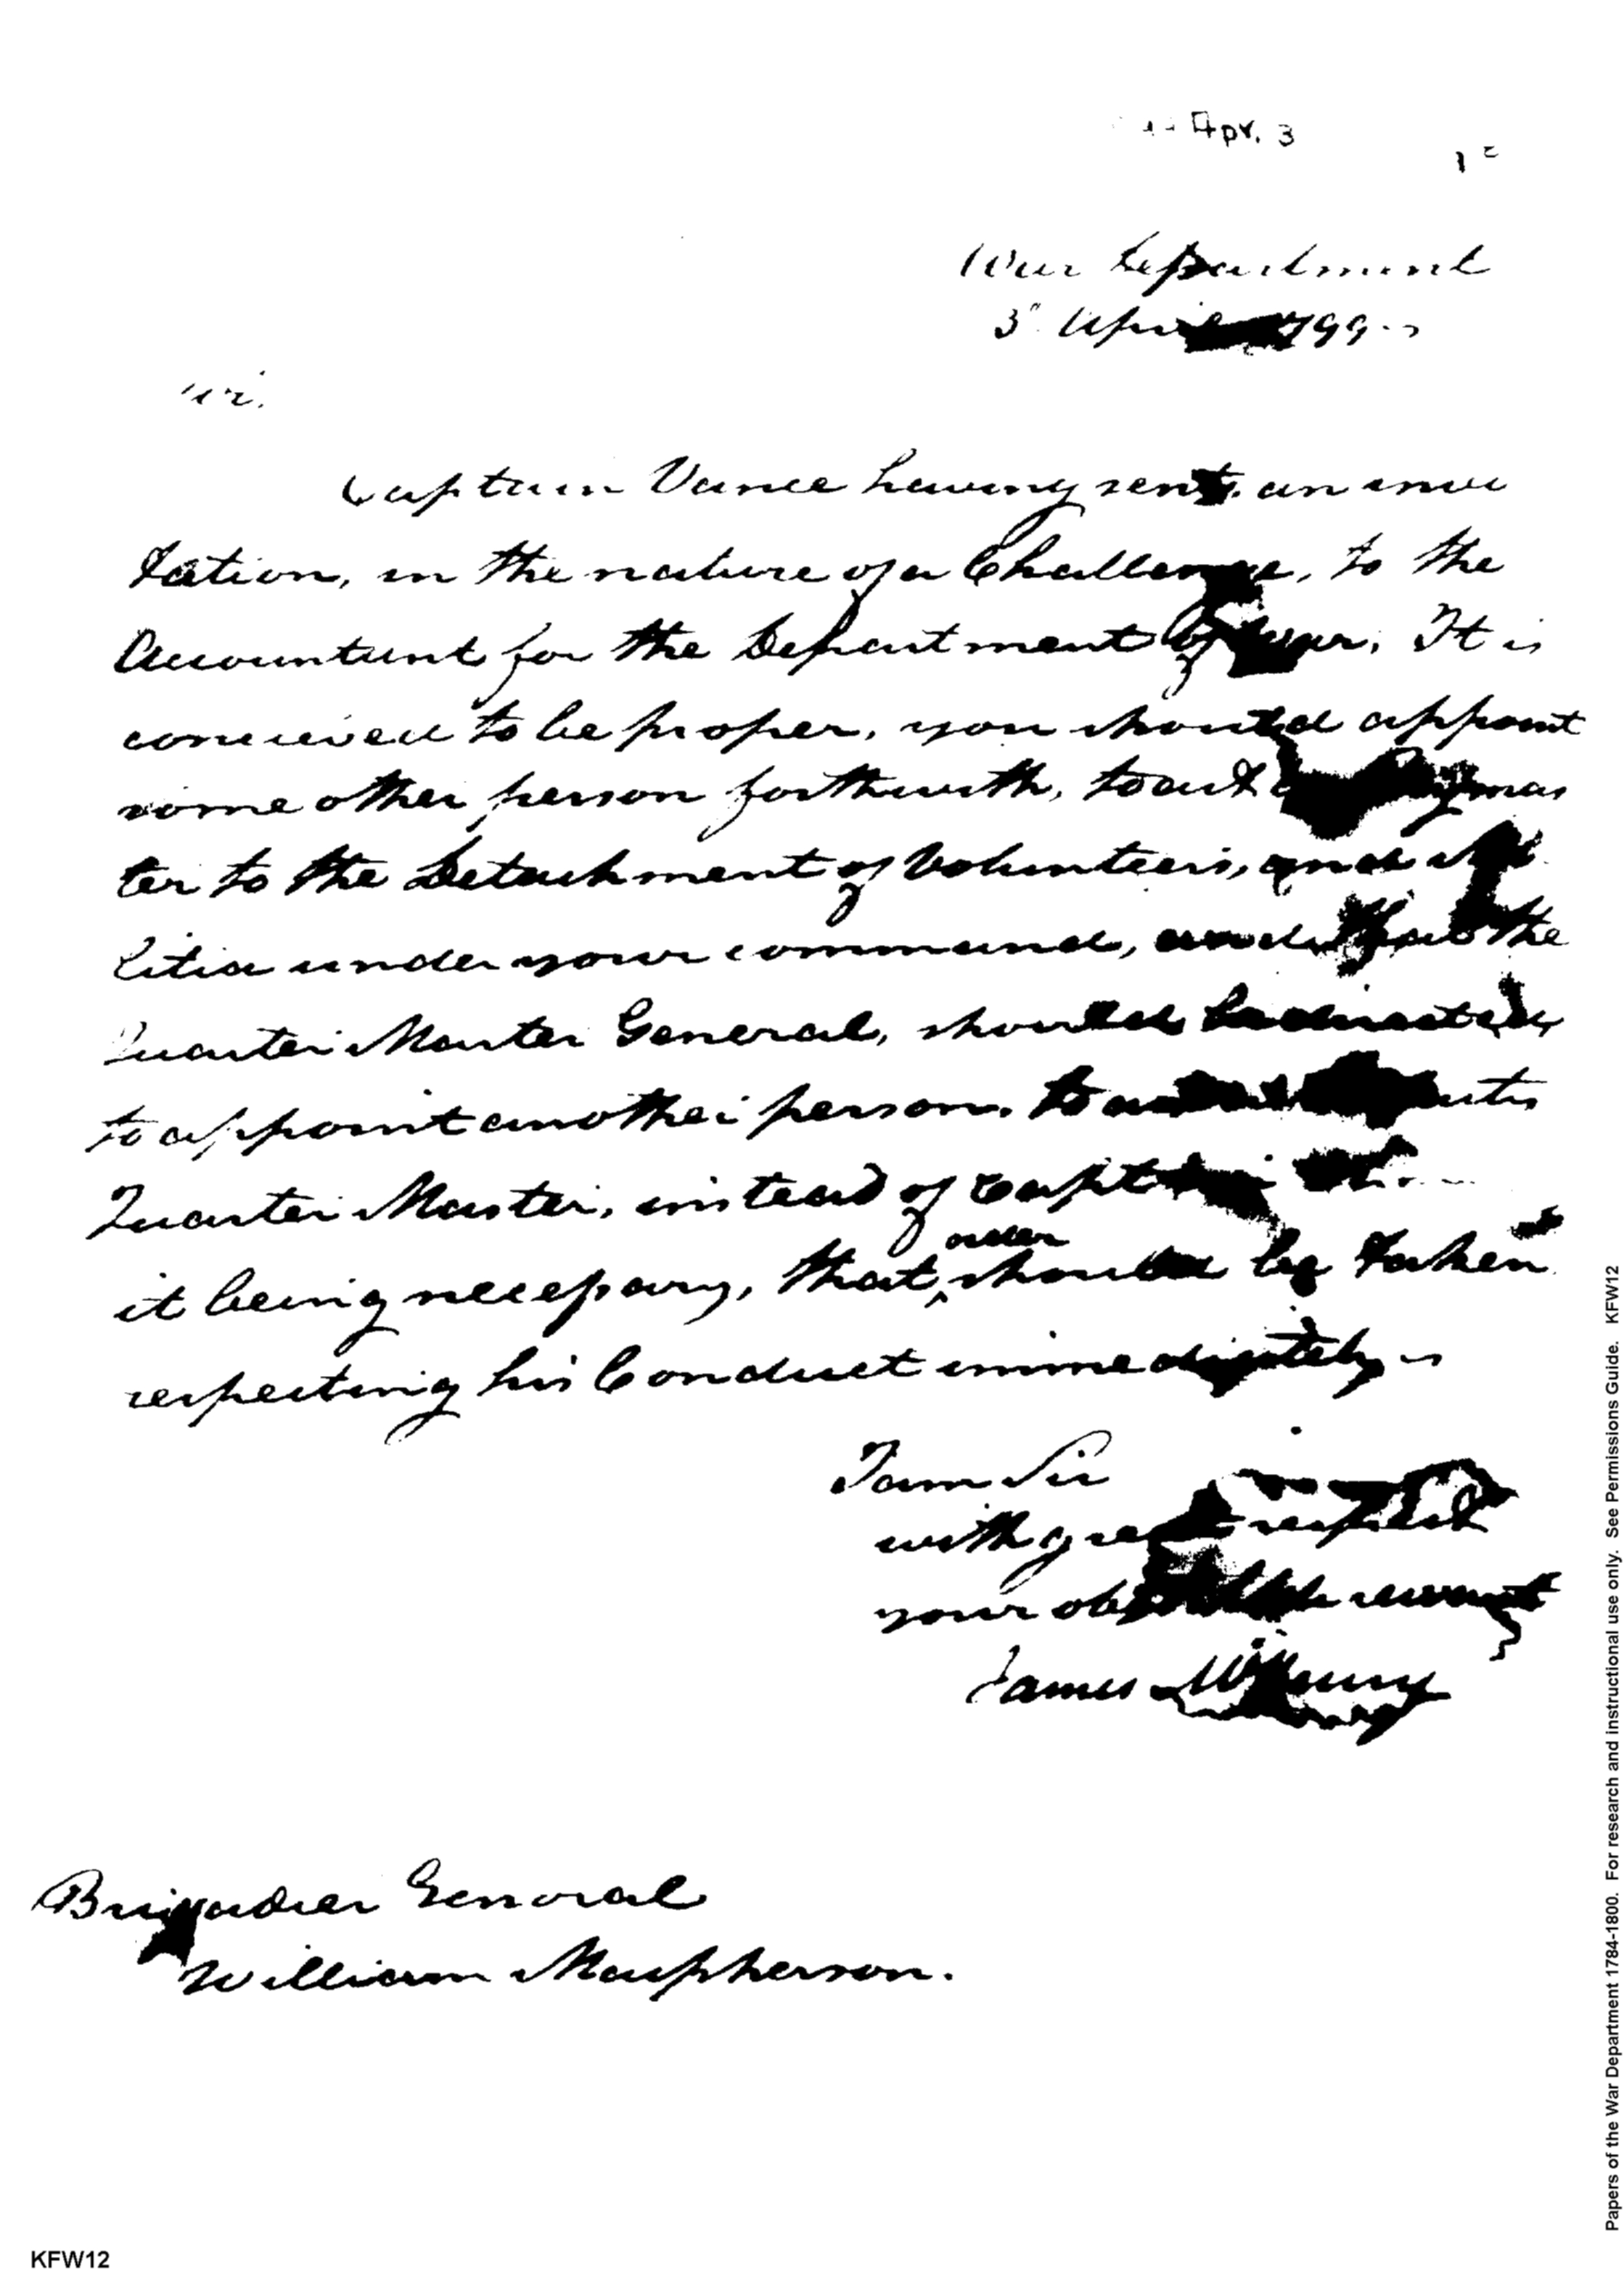 Apr. 3
War Department
3 April 1799
Sir.
Captain Vance having sent an invi
tation, in the nature of a Challenge, to the
Accountant for the Department of War. It is
concieved to be proper, you should appoint
some other person forthwith, to act paymas
ter to the Detachment of Volunteers, and Mi
litia under your command, and that the
Quarter Master General, should be directed,
to appoint another person, to act
Quarter Master, instead of Captain
it being necessary, that order should be taken
respecting his Conduct immediately
I am Sir
with great respect
your obedt servant
James McHenry
Brigadier General
William Macpherson.
KFW12
Papers of the War Department 1784-1800. For research and instructional use only. See Permissions Guide. KFW12